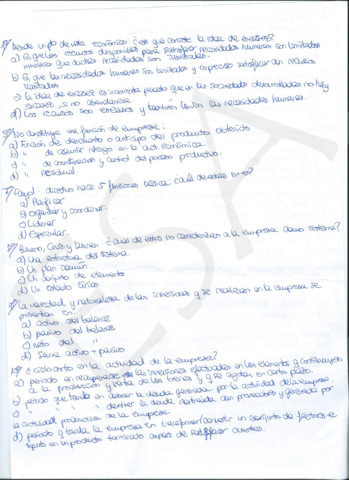 1) Desde un pto de vista económico ¿en qué consiste la idea de escasez?
a) En que los recursos disponibles para satisfacer necesidades humanas son limitados
mientras que dichas necesidades son ilimitadas.
b) En que las necesidades humanas son limitadas y es preciso satisfacer con recursos
ilimitados
c) La idea de escasez es incorrecta puesto que en las sociedades desarrolladas no hay
escasez, si no abundancia
d) Los recursos son escasos y también lo son las necesidades humanas.
No constituye una función de la empresa:
a) Función de descuento o anticipo del producto obtenido
b) " de asumir riesgo en la act. económica.
c) " de coordinación y control del proceso productivo.
d) " residual.
Fayol: directivo hace 5 funciones básicas: ¿cuál de estas no es?
a) Planificar
b) Organizar y coordinar.
c) Liderar
d) Especular.
Bueno, Cruz y Durán: ¿Cual de estos no caracterizan a la empresa como sistema?
a) Una estructura del sistema.
b) Un plan común
c) Un conjunto de elementos
d) Un estado único
La variedad y naturaleza de las inversiones q se realizan en la empresa se
presentan en:
a) activo del balance
b) pasivo del balance
c) neto del "
d) Suma activo + pasivo
¿ciclo corto en la actividad de la empresa?
a) periodo en recuperarse las inversiones efectuadas en los elementos q contribuyen
a la producción y venta de los bienes y q se agotan en corto plazo.
b) periodo que tarda en cobrar la deuda generada por la actividad de la empresa
c) " " " devolver la deuda contraída con proveedores y generada por
la actividad productiva de la empresa
d) periodo q tarda la empresa en transformar/convertir un conjunto de factores e
inputs en un producto terminado capaz de satisfacer
CSA